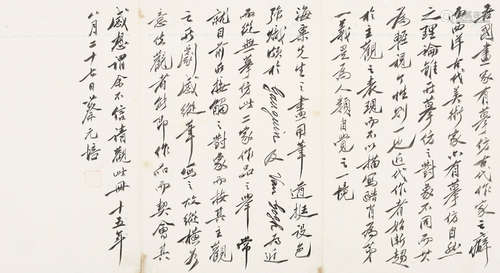 吾國畫家有摹仿古代作家之癖
而西洋古代美術家亦有摹仿自然
之理論雖所摹仿之對象不同而其
為輕視個性則一也近代作者始漸趨
於主觀之表現而不以描寫酷肖為第
一義是為人類自覺之一境
海粟先生之畫用筆遒挺設色
強熾頗於Gauguin及Van Gogh為近
而從無摹仿此二家作品之舉常
就目前所接觸之對象而按其主觀
之所劇感縱筆寫之故縱橫如
意使觀者能即作品而契會其
感想謂余不信請觀此冊十五年
八月二十七日蔡元培